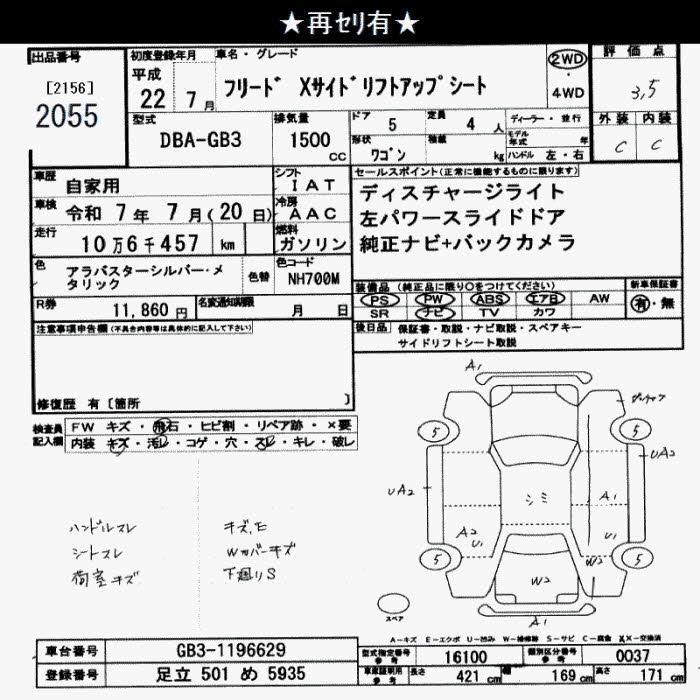 ★再セリ有★
出品番号
[2156]
2055
初度登録年月
平成
22 7 月
車名・グレード
フリード Xサイドリフトアップシート
2WD
・
4WD
評価点
3,5
外装 内装
C C
型式
DBA-GB3
排気量
1500
cc
ドア
5
定員
4 人
形状
ワゴン
積載
kg
ディーラー・並行
モデル年式 年
ハンドル 左・右
車歴
自家用
車検
令和 7 年 7 月(20 日)
走行
10 万 6 千 457 km
シフト
IAT
冷房
AAC
燃料
ガソリン
セールスポイント(正常に機能するものに限ります)
ディスチャージライト
左パワースライドドア
純正ナビ+バックカメラ
色
アラバスターシルバー・メ
タリック
色替
色コード
NH700M
R券
11,860 円
名変通知期限
月 日
装備品 (純正品に限り○をつけてください)
PS PW ABS エアB AW
SR ナビ TV カワ
新車保証書
有・無
後日品 保証書・取説・ナビ取説・スペアキー
サイドリフトシート取説
注意事項申告欄(不具合内容等は具体的に記入して下さい)
修復歴 有〔箇所 〕
検査員
記入欄
FW キズ・飛石・ヒビ割・リペア跡・×要
内装 キズ・汚レ・コゲ・穴・スレ・キレ・破レ
ハンドルスレ
シートスレ
荷室キズ
キズ,E
Wカバーキズ
下廻りS
A1
5 5
UA2 UA2
シミ
A1
A2
U1 U1
5 5
W2 W2
A1
スペア
A－キズ E－エクボ U－凹み W－補修跡 S－サビ C－腐食 X,X－交換済
車台番号 GB3-1196629
登録番号 足立 501 め 5935
型式指定番号
参考
16100
類別区分番号
参考
0037
車庫証明用
参考
長さ 421 cm 幅 169 cm 高さ 171 cm